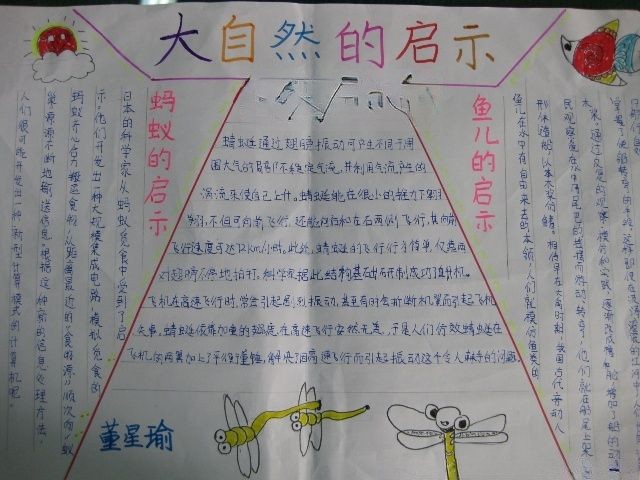 大自然的启示
蚂蚁的启示
日本的科学家从蚂蚁觅食中受到了启
示,他们开发出一种大规模集成电路,模拟觅食的
蚂蚁齐心合力搬运食物,从距离最近的"食物源"顺次向"蚁
巢"源源不断地输送信息。根据这种新的信息处理方法,
人们很可能开发出一种新型计算模式的计算机呢。
蜻蜓通过翅膀振动可产生不同于周
围大气的局部不稳定气流,并利用气流产生的
涡流来使自己上升。蜻蜓能在很小的推力下翱
翔,不但可向前飞行,还能向后和左右两侧飞行,其向前
飞行速度可达72km/小时。此外,蜻蜓的飞行行为简单,仅靠两
对翅膀不停地拍打。科学家据此结构基础研制成功了直升机。
飞机在高速飞行时,常会引起剧烈振动,甚至有时会折断机翼而引起飞机
失事。蜻蜓依靠加重的翅痣在高速飞行时安然无恙,于是人们仿效蜻蜓在
飞机的两翼加上了平衡重锤,解决了因高速飞行而引起振动这个令人棘手的问题
鱼儿的启示
鱼儿在水中有自由来去的本领,人们就模仿鱼类的
形体造船,以木桨仿鳍。相传早在大禹时期,我国古代劳动人
民观察鱼在水中用尾巴的摇摆而游动、转弯,他们就在船尾上架
木桨。通过反复的观察、模仿和实践,逐渐改成橹和舵,增加了船的动
董星瑜